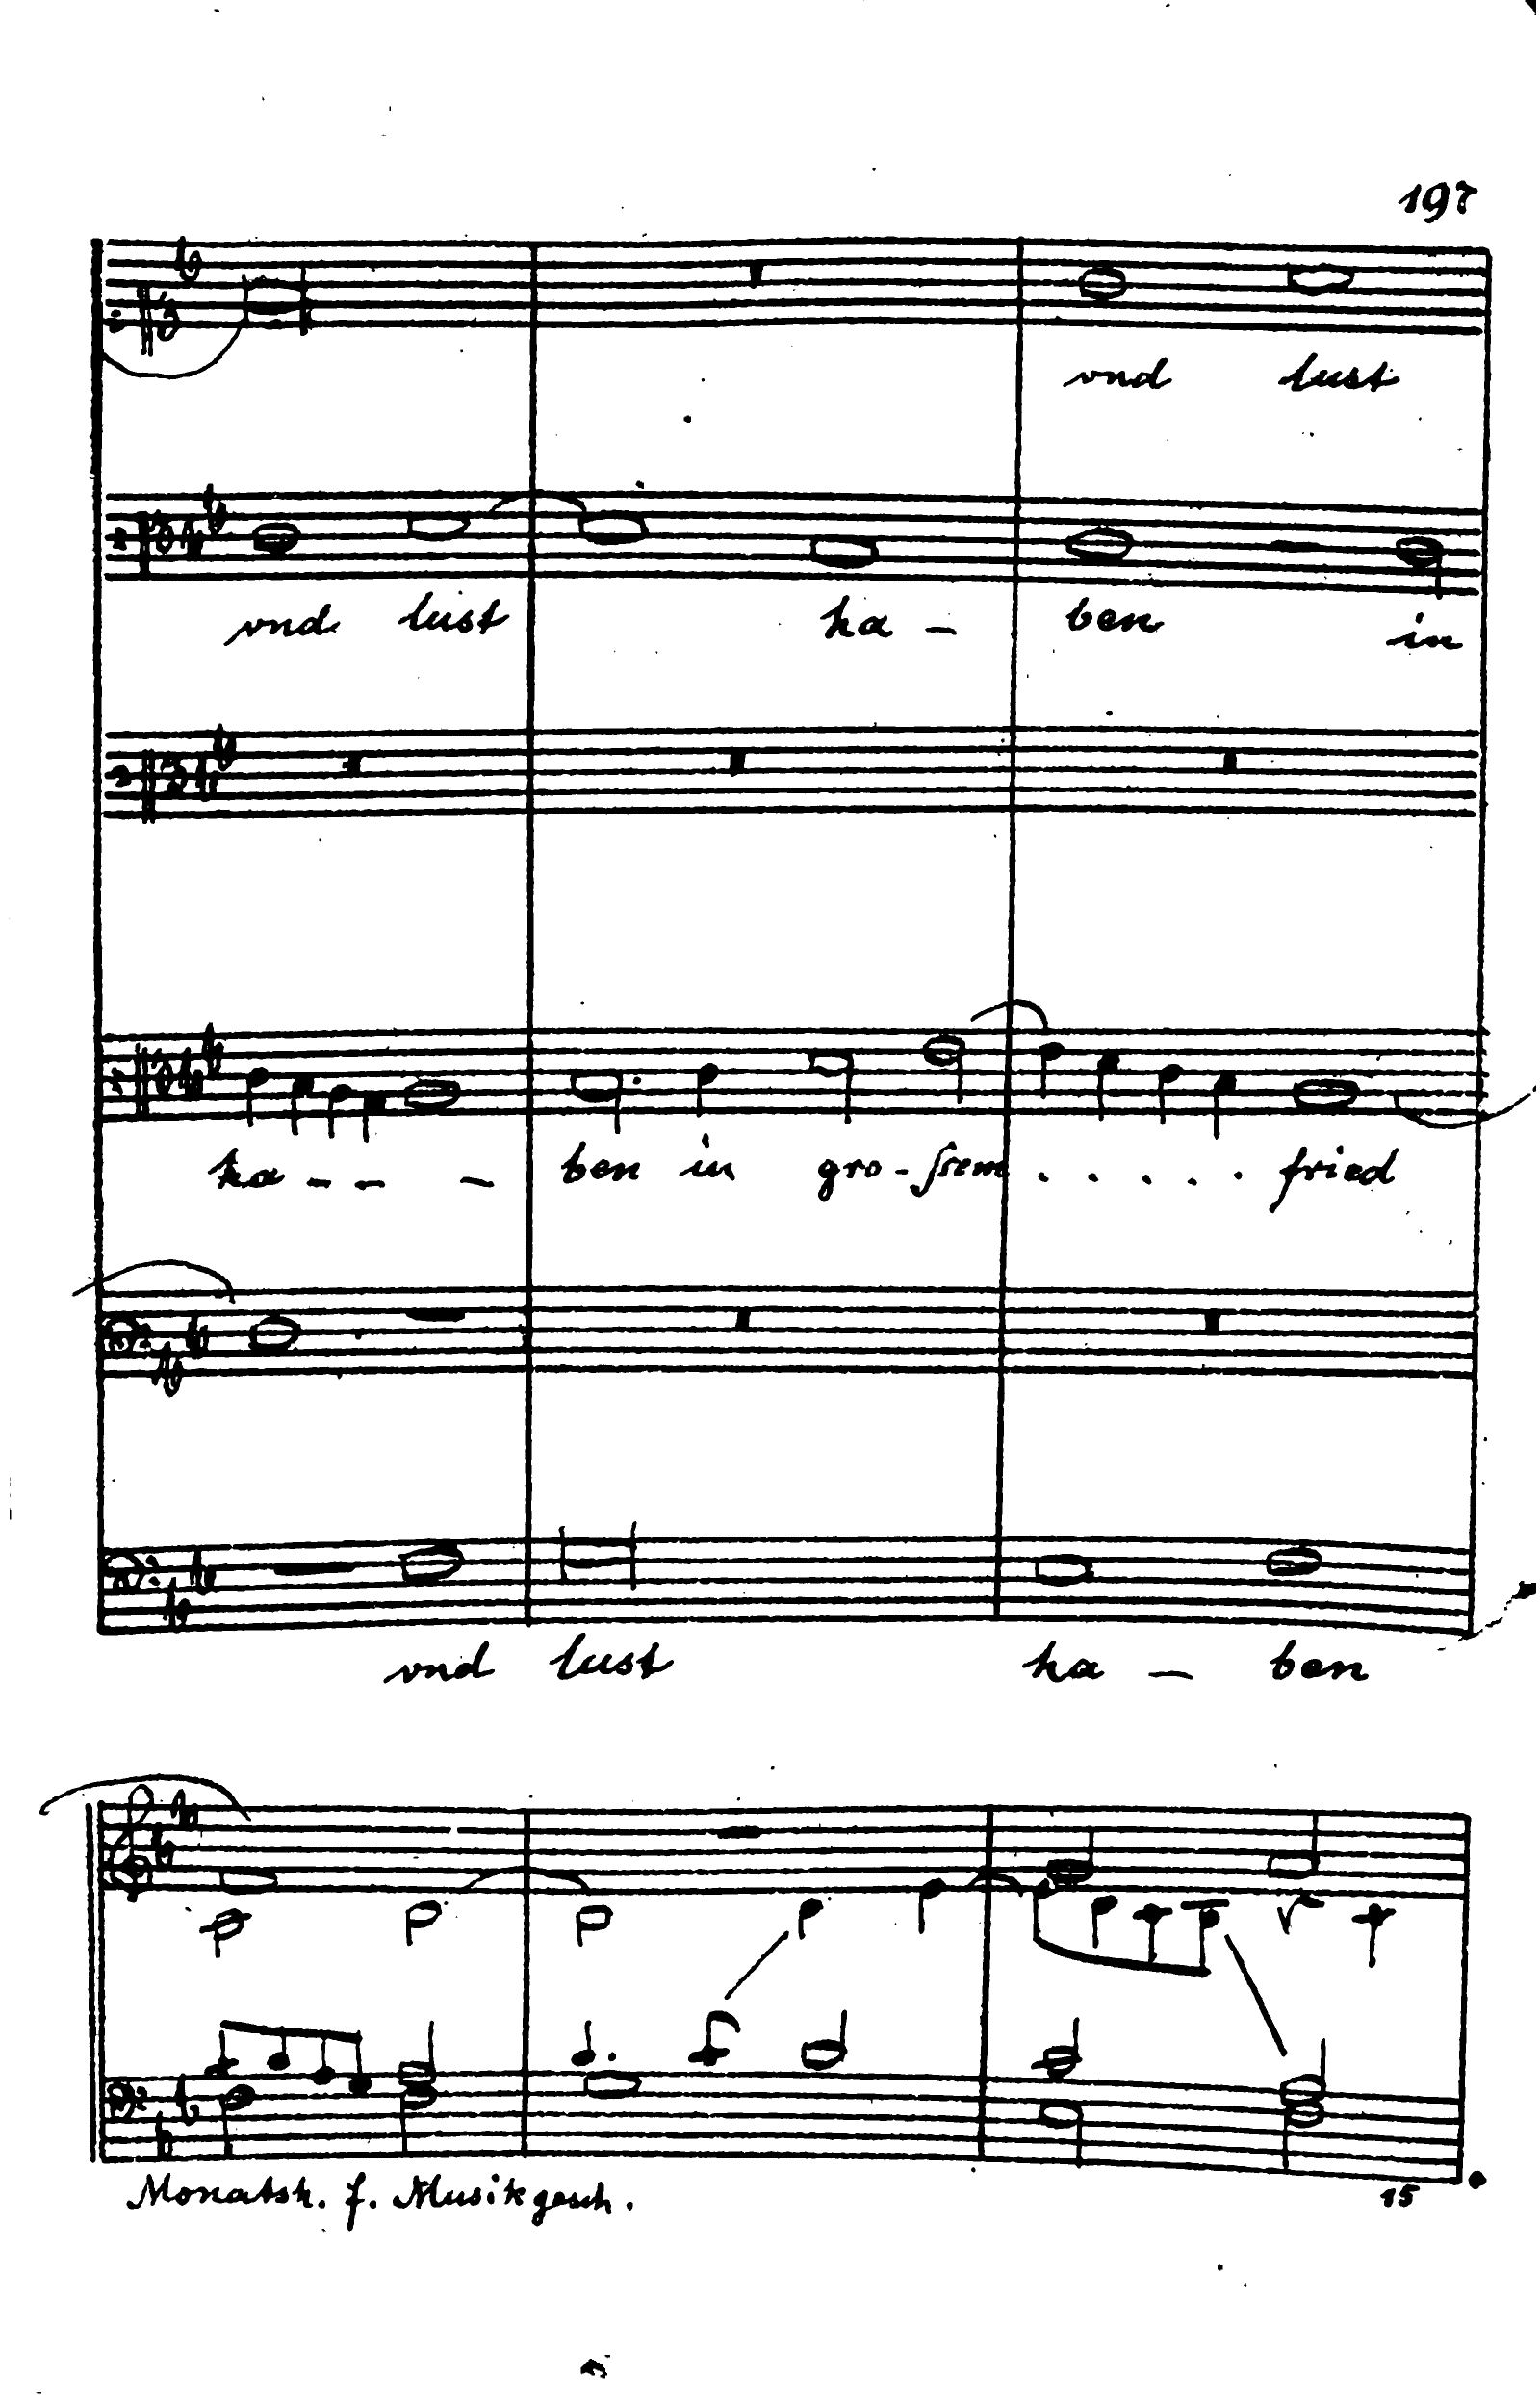 197
vnd lust
vnd lust ha - ben in
ha - - - ben in gro - ssem . . . . . fried
vnd lust ha - ben
Monatsh. f. Musikgesch.
15